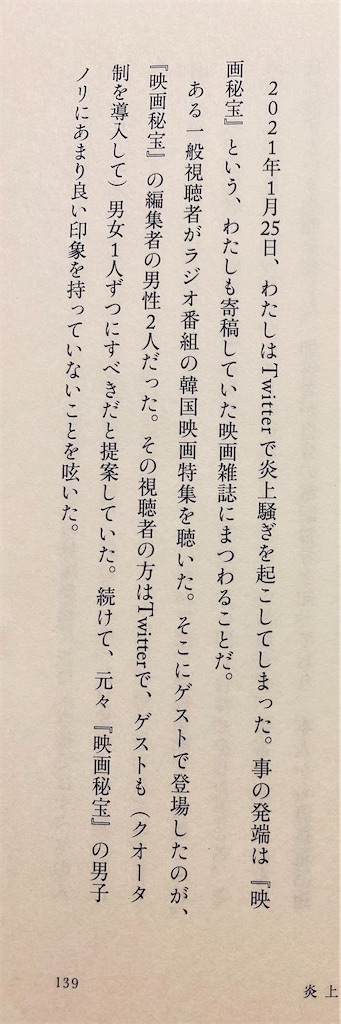 2021年1月25日、わたしはTwitterで炎上騒ぎを起こしてしまった。事の発端は『映
画秘宝』という、わたしも寄稿していた映画雑誌にまつわることだ。
　ある一般視聴者がラジオ番組の韓国映画特集を聴いた。そこにゲストで登場したのが、
『映画秘宝』の編集者の男性2人だった。その視聴者の方はTwitterで、ゲストも（クオータ
制を導入して）男女1人ずつにすべきだと提案していた。続けて、元々『映画秘宝』の男子
ノリにあまり良い印象を持っていないことを呟いた。
139
炎上